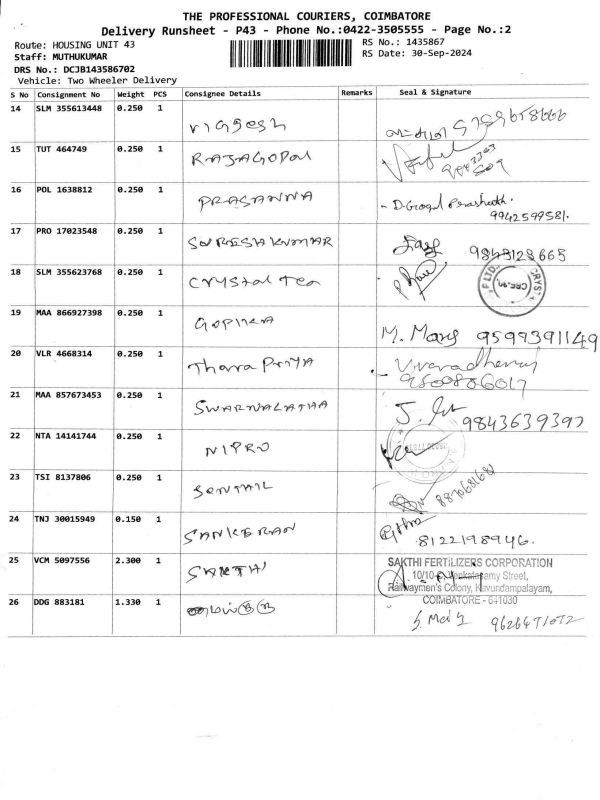 THE PROFESSIONAL COURIERS, COIMBATORE
Delivery Runsheet - P43 - Phone No.:0422-3505555 - Page No.:2
Route: HOUSING UNIT 43 RS No.: 1435867
Staff: MUTHUKUMAR RS Date: 30-Sep-2024
DRS No.: DCJB143586702
Vehicle: Two Wheeler Delivery
S No Consignment No Weight PCS Consignee Details Remarks Seal & Signature
14 SLM 355613448 0.250 1 vignesh
15 TUT 464749 0.250 1 RAJAGOPAL
16 POL 1638812 0.250 1 PRASANNA - D. Gopal Prashath.
9942599581.
17 PRO 17023548 0.250 1 SURESH KUMAR 9843123665
18 SLM 355623768 0.250 1 Crystal Tea
19 MAA 866927398 0.250 1 GOPIKA M. Mary 9599391149
20 VLR 4668314 0.250 1 Thara Priya
9500886017
21 MAA 857673453 0.250 1 SWARNALATHA 9843639397
22 NTA 14141744 0.250 1 NIPRO
23 TSI 8137806 0.250 1 SENTHIL
24 TNJ 30015949 0.150 1 SANKERAN
8122198946.
25 VCM 5097556 2.300 1 SAKTHI SAKTHI FERTILIZERS CORPORATION
10/10 Venkatasamy Street,
Railwaymen's Colony, Kavundampalayam,
COIMBATORE - 641030
26 DDG 883181 1.330 1